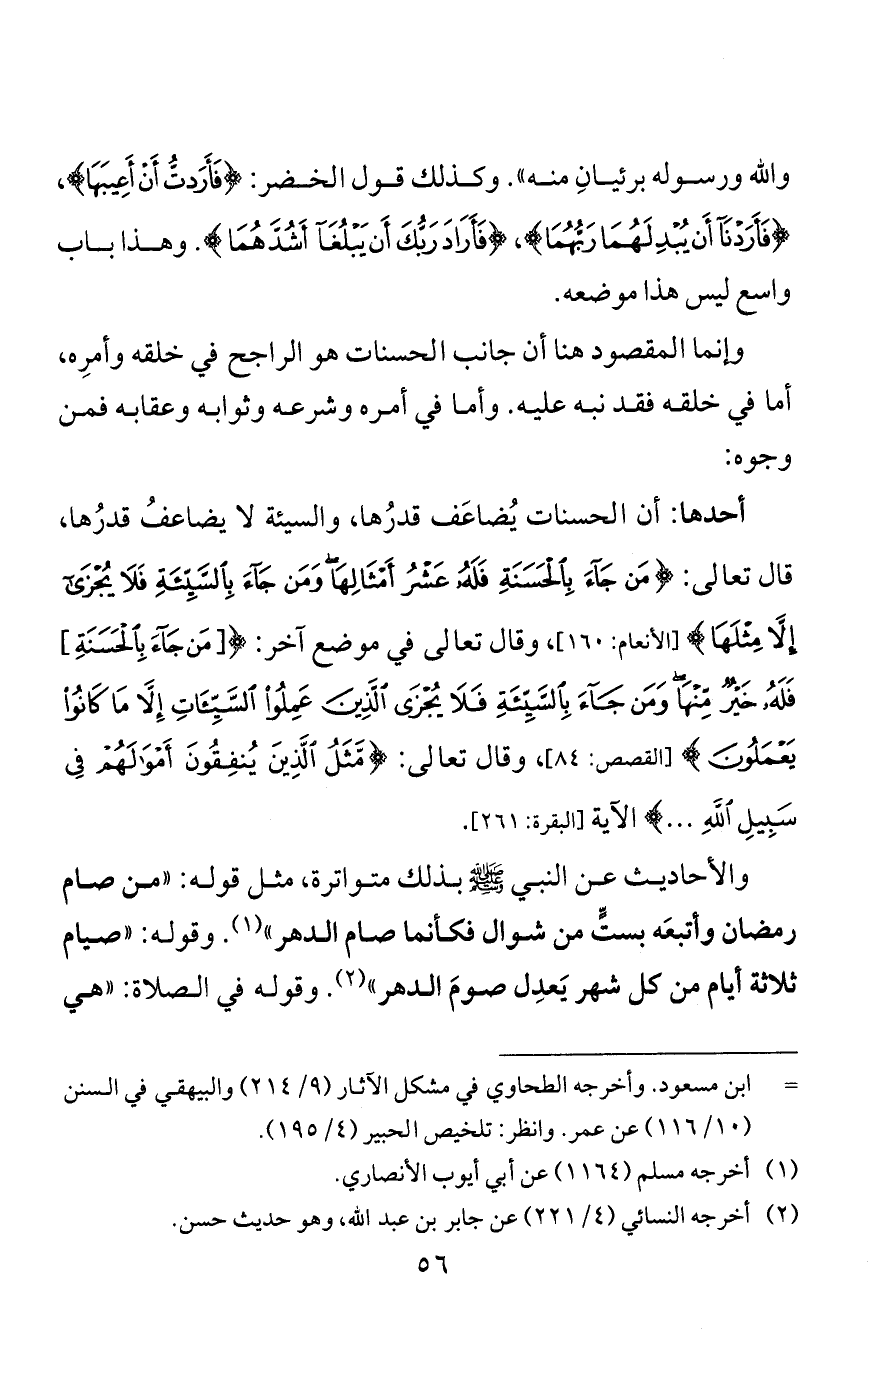 والله ورسوله بريئانِ منه». وكذلك قول الخضر: ﴿فَأَرَدتُّ أَنْ أَعِيبَهَا﴾،
﴿فَأَرَدْنَآ أَن يُبْدِلَهُمَا رَبُّهُمَا﴾، ﴿فَأَرَادَ رَبُّكَ أَن يَبْلُغَآ أَشُدَّهُمَا﴾. وهذا باب
واسع ليس هذا موضعه.
وإنما المقصود هنا أن جانب الحسنات هو الراجح في خلقه وأمرِه،
أما في خلقه فقد نبه عليه. وأما في أمره وشرعه وثوابه وعقابه فمن
وجوه:
أحدها: أن الحسنات يُضاعَف قدرُها، والسيئة لا يضاعفُ قدرُها،
قال تعالى: ﴿مَن جَآءَ بِٱلْحَسَنَةِ فَلَهُۥ عَشْرُ أَمْثَالِهَا ۖ وَمَن جَآءَ بِٱلسَّيِّئَةِ فَلَا يُجْزَىٰٓ
إِلَّا مِثْلَهَا﴾ [الأنعام: ١٦٠]، وقال تعالى في موضع آخر: ﴿[مَن جَآءَ بِٱلْحَسَنَةِ]
فَلَهُۥ خَيْرٌ مِّنْهَا ۖ وَمَن جَآءَ بِٱلسَّيِّئَةِ فَلَا يُجْزَى ٱلَّذِينَ عَمِلُوا۟ ٱلسَّيِّئَاتِ إِلَّا مَا كَانُوا۟
يَعْمَلُونَ﴾ [القصص: ٨٤]، وقال تعالى: ﴿مَّثَلُ ٱلَّذِينَ يُنفِقُونَ أَمْوَٰلَهُمْ فِى
سَبِيلِ ٱللَّهِ ...﴾ الآية [البقرة: ٢٦١].
والأحاديث عن النبي ﷺ بذلك متواترة، مثل قوله: «من صام
رمضان وأتبعَه بستٍّ من شوال فكأنما صام الدهر»(١). وقوله: «صيام
ثلاثة أيام من كل شهر يَعدِل صومَ الدهر»(٢). وقوله في الصلاة: «هي
= ابن مسعود. وأخرجه الطحاوي في مشكل الآثار (٩/ ٢١٤) والبيهقي في السنن
(١٠/ ١١٦) عن عمر. وانظر: تلخيص الحبير (٤/ ١٩٥).
(١) أخرجه مسلم (١١٦٤) عن أبي أيوب الأنصاري.
(٢) أخرجه النسائي (٤/ ٢٢١) عن جابر بن عبد الله، وهو حديث حسن.
٥٦